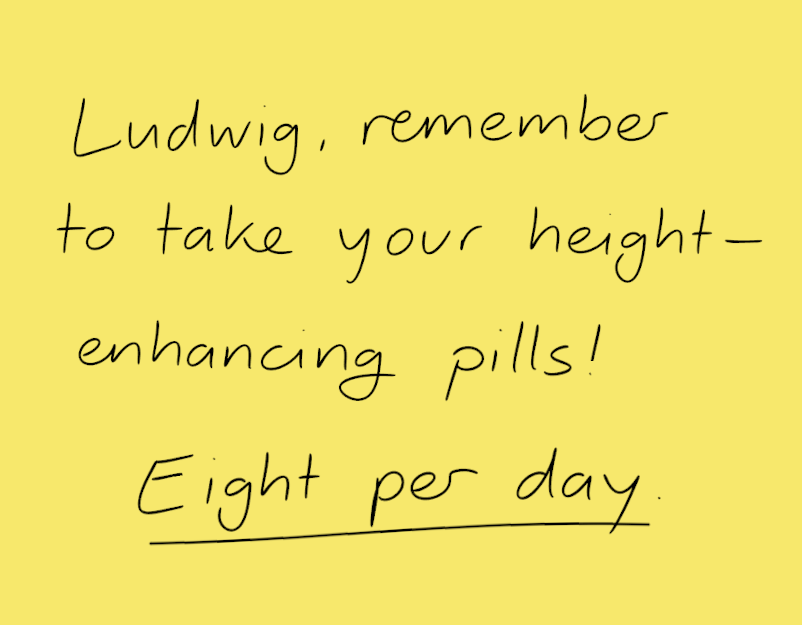 Ludwig, remember
to take your height-
enhancing pills!
Eight per day.